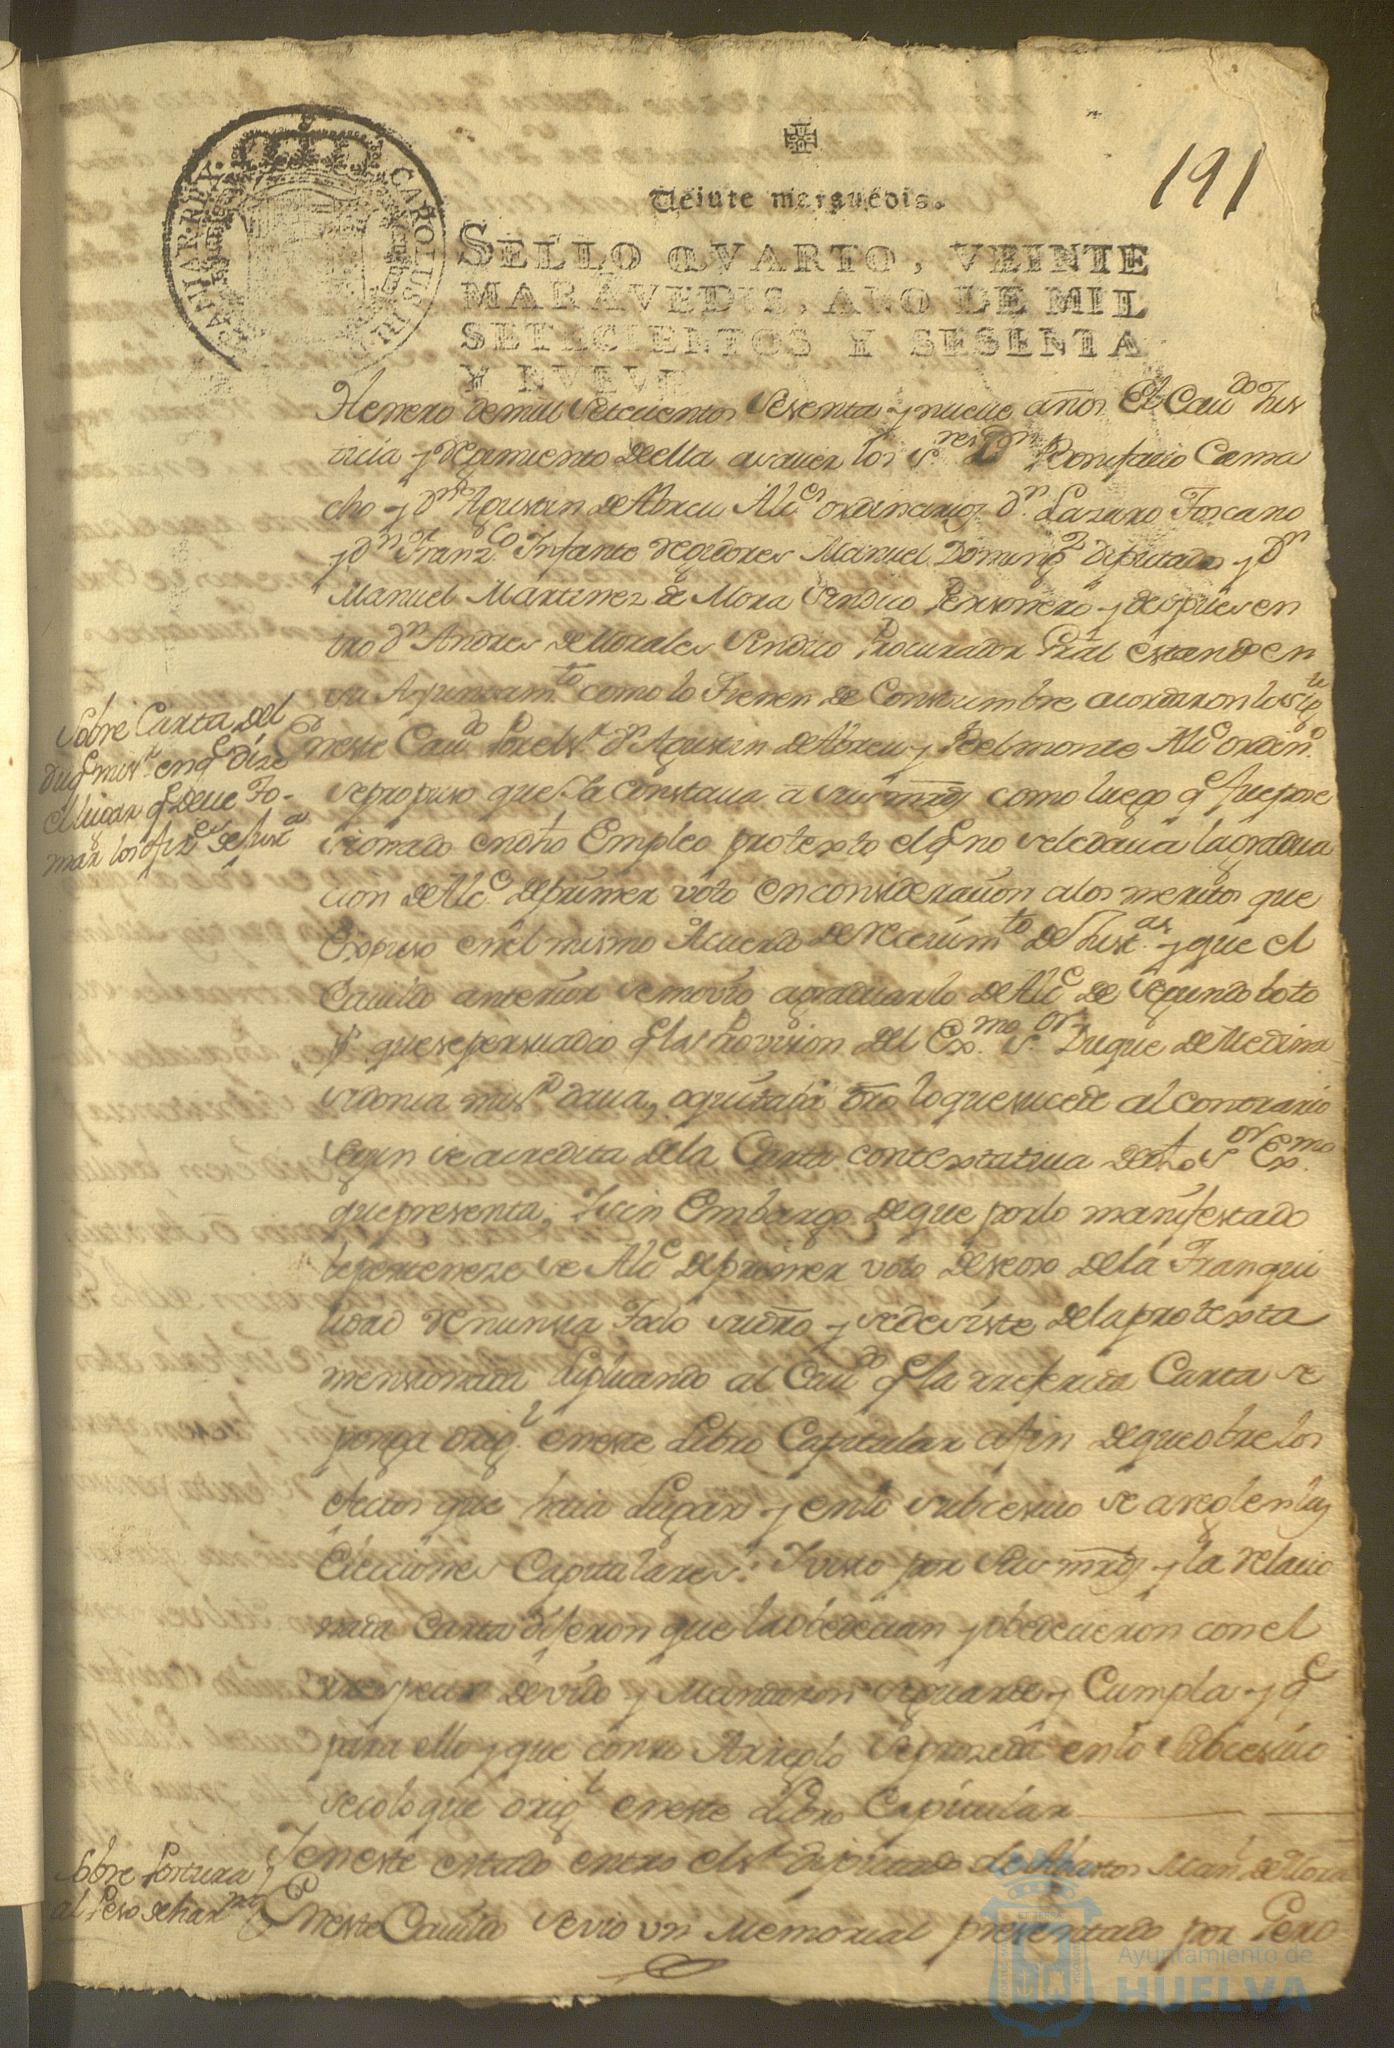 191
Veinte maravedis.
SELLO QVARTO, VEINTE
MARAVEDIS, AÑO DE MIL
SETECIENTOS Y SESENTA
Y NVEVE
CAROLUS III D HISPANIAR. REX.
Henero de mill Setecientos Sesenta y nueve años El Cavdo Jus
ticia y Regimiento de ella asaver los sres Dn Bonifacio Cama
cho y Dn Agustin de Abreu Alces ordinarios Dn Lazaro Toscano
y Dn Franzco Infante Regidores Manuel Doming Diputado y Dn
Manuel Martinez de Mora Sindico Personero y despues en
tro Dn Andres de Morales Sindico Procurador Gral estando en
su Ayuntamto como lo Tienen de Constumbre acordaron lo sigte
Sobre Carta del
Duq mi sr en q dize
el lugar q deve To-
mar los ofizes de Justa
En este Cavdo Por el sr Dn Agustin de Abreu y Belmonte Alce ordino
se propuso que Ya Constava a sus mrds como luego qe fue pose
sionado en dho Empleo protexto el qe no se le dava la gradua
cion de Alce de primer voto en consideracion a los meritos que
Expuso en el mismo Acuerdo de recevimto de Justas y que el
Cavildo anterior se movio a graduarlo de Alce de segundo boto
pr que se persuadio qe la Provision del Exmo sor Duque de Medina
sidonia mi sr dava, aquitabi dro lo que sucede al contrario
segun se acredita de la Carta contextativa de dho sor Exmo
que presenta, Y sin Embargo de que por lo manifestado
le perteneze ser Alce de primer voto deseoso de la Tranqui
lidad renuncia Todo su dro y se desiste de la protexta
mensionada Suplicando al Cavdo qe la referida Carta se
ponga origl en este Libro Capitular a fin de que obre los
efectos que haia Lugar y en lo subcesivo se areglen las
Elecciones Capitulares: Y visto por sus mrds y la relacio
nada Carta dijeron que la obedecian y obedecieron con el
respecto devido y Mandaron se guarde y Cumpla y qe
para ello y que con su Arreglo se prozeda en lo subcesivo
se coloque origl en este Libro Capitular
Y en este estado entro el sr Diputado de Abastos Manl de Mora
Sobre Postura
al Peso de harna
En este Cavildo se vio un Memorial presentado por Pero
Ayuntamiento de
HUELVA